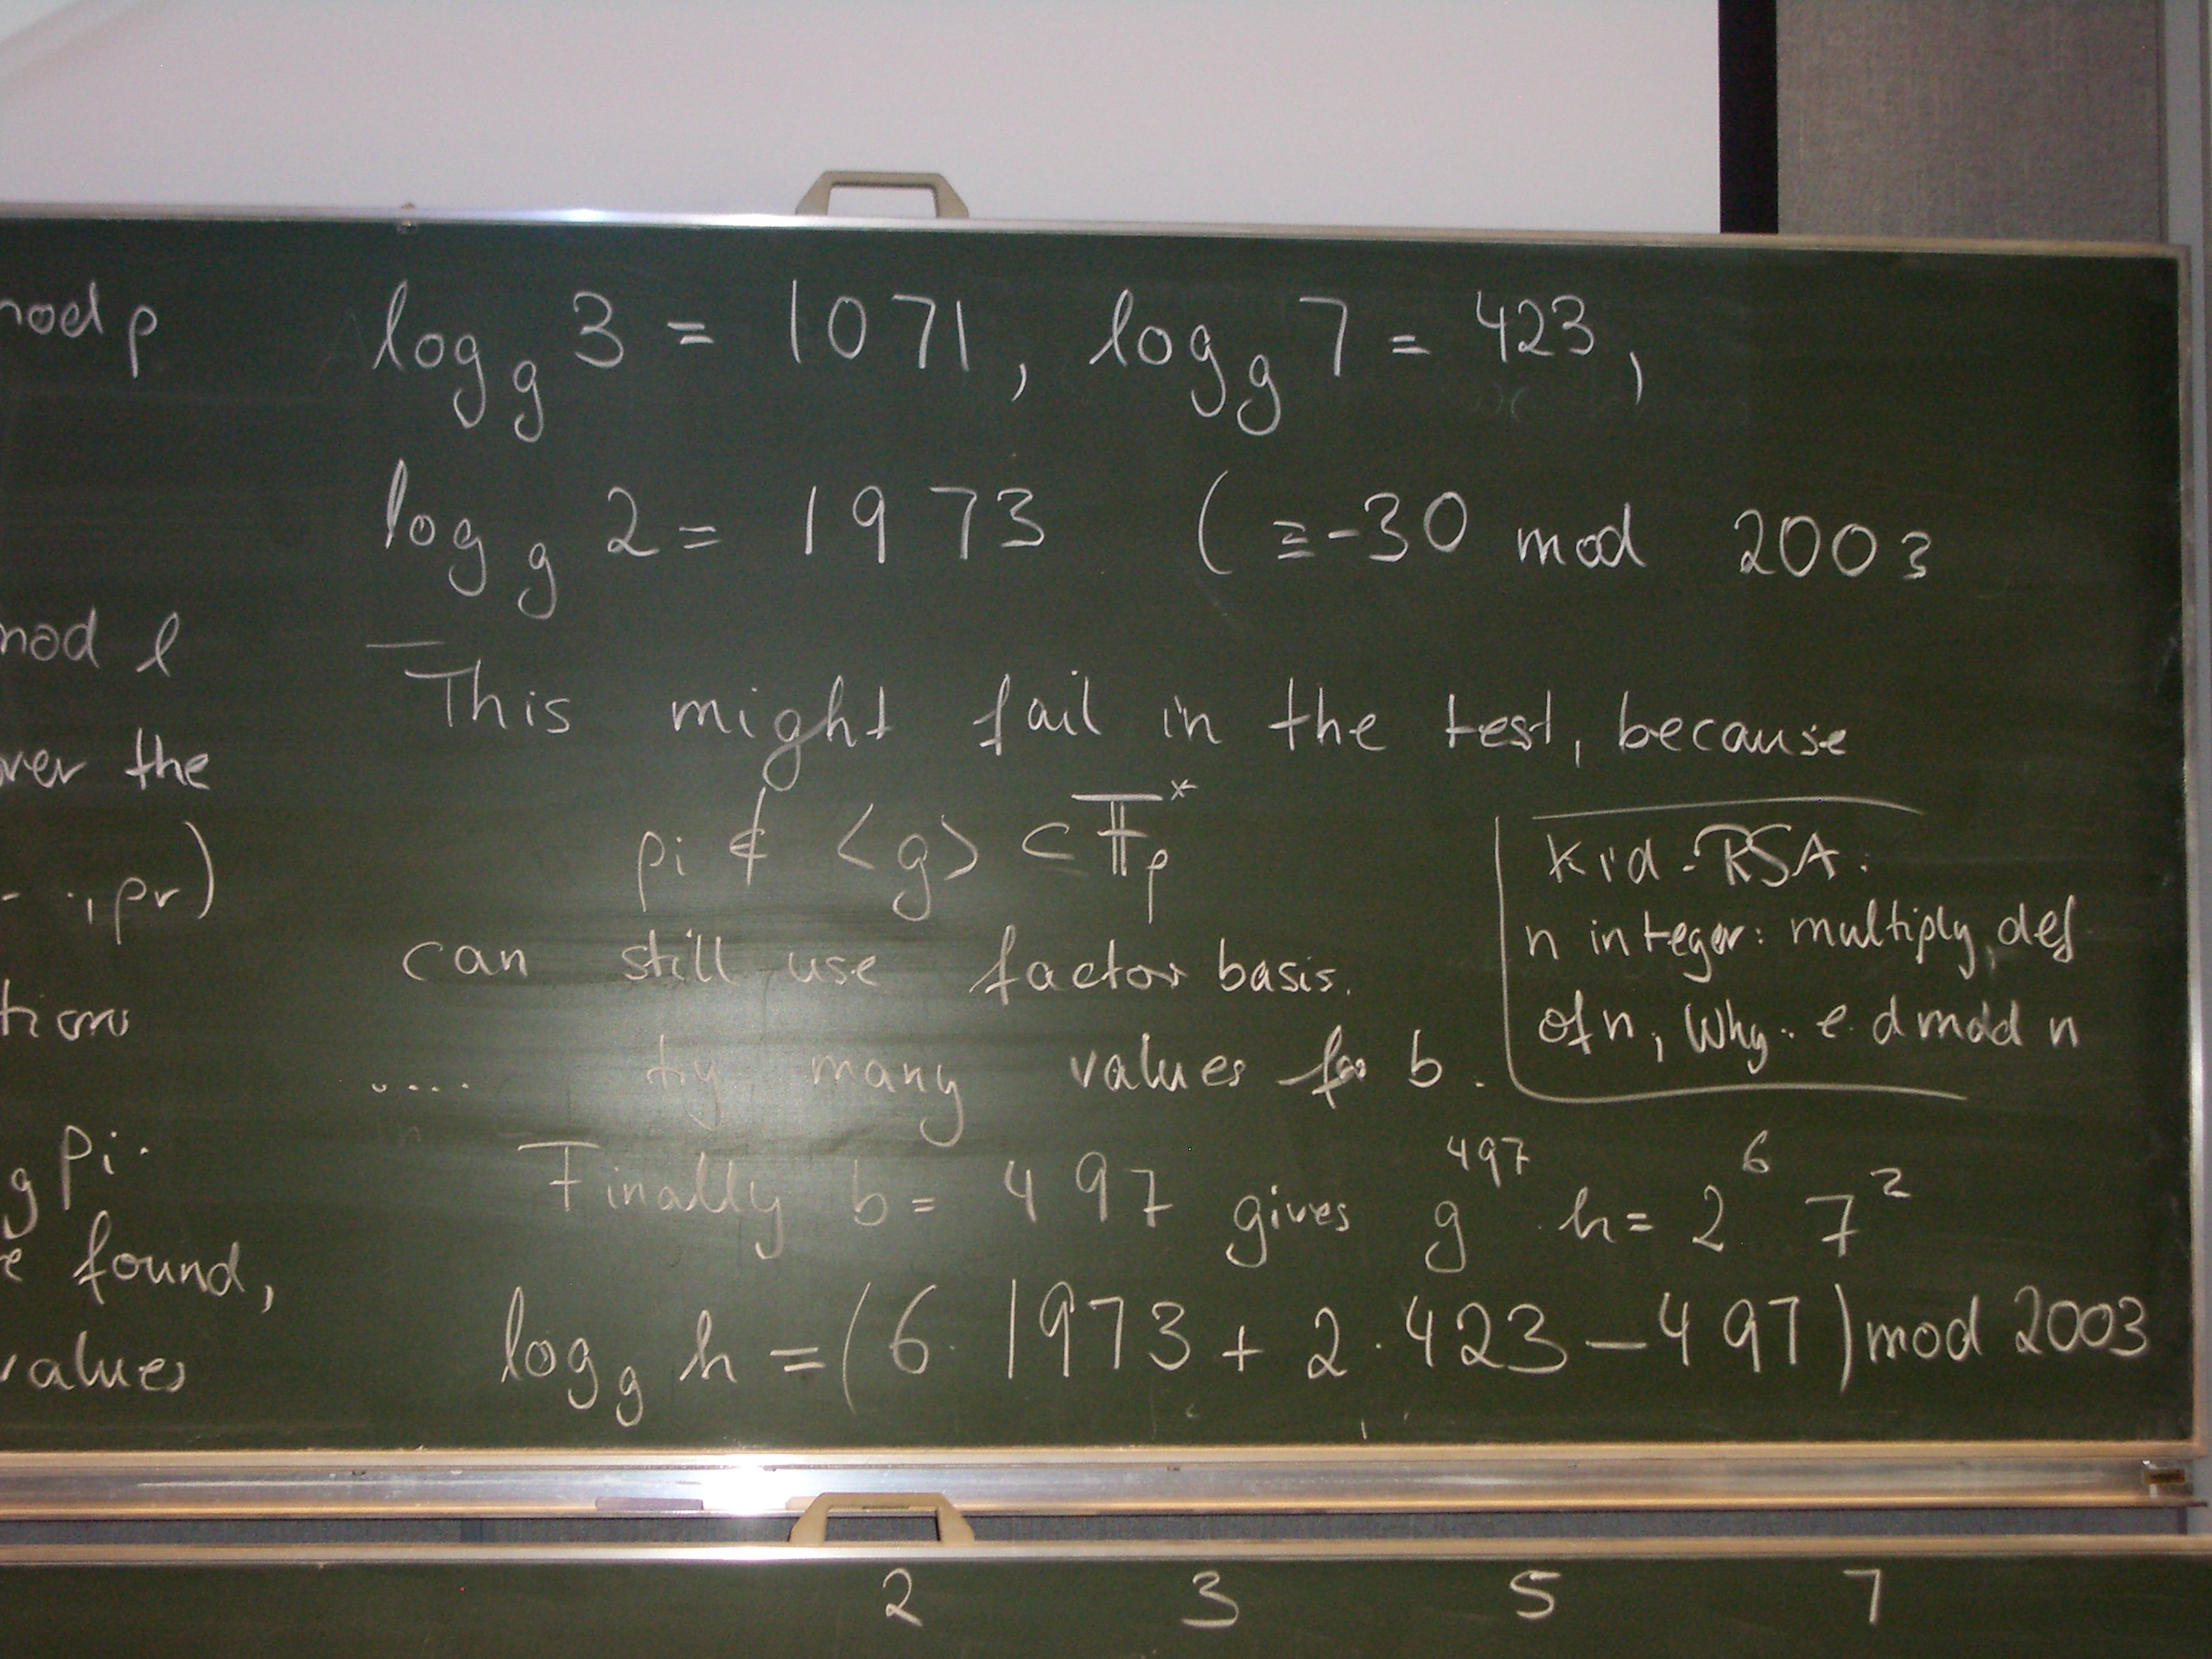 mod p
mod l
ver the
- . , pr)
tion
g pi.
e found,
values
log_g 3 = 1071, log_g 7 = 423,
log_g 2 = 1973 ( ≡ -30 mod 2003
This might fail in the test, because
pi ∉ <g> ⊂ 𝔽p*
can still use factor basis.
.... try many values for b.
Finally b = 497 gives g^497 · h = 2^6 7^2
log_g h = (6 · 1973 + 2 · 423 - 497) mod 2003
Kid-RSA:
n integer: multiply, def
of n, Why: e·d mod n
2 3 5 7